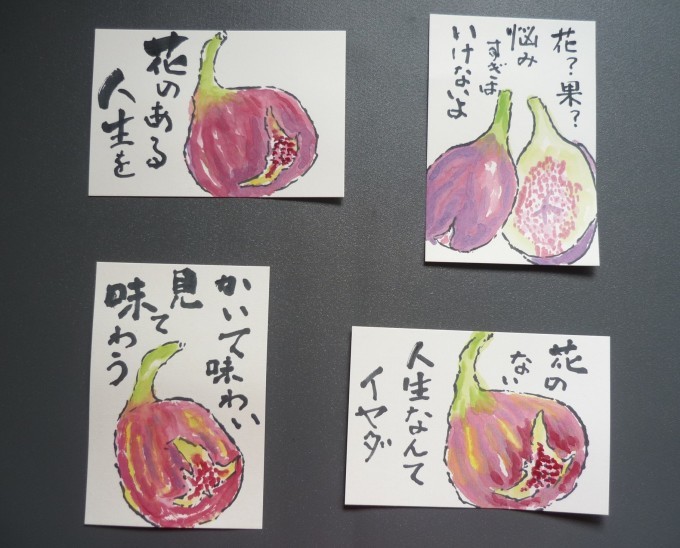 花のある
人生を
花？果？
悩み
すぎは
いけないよ
かいて味わい
見て
味わう
花の
ない
人生なんて
イヤダ